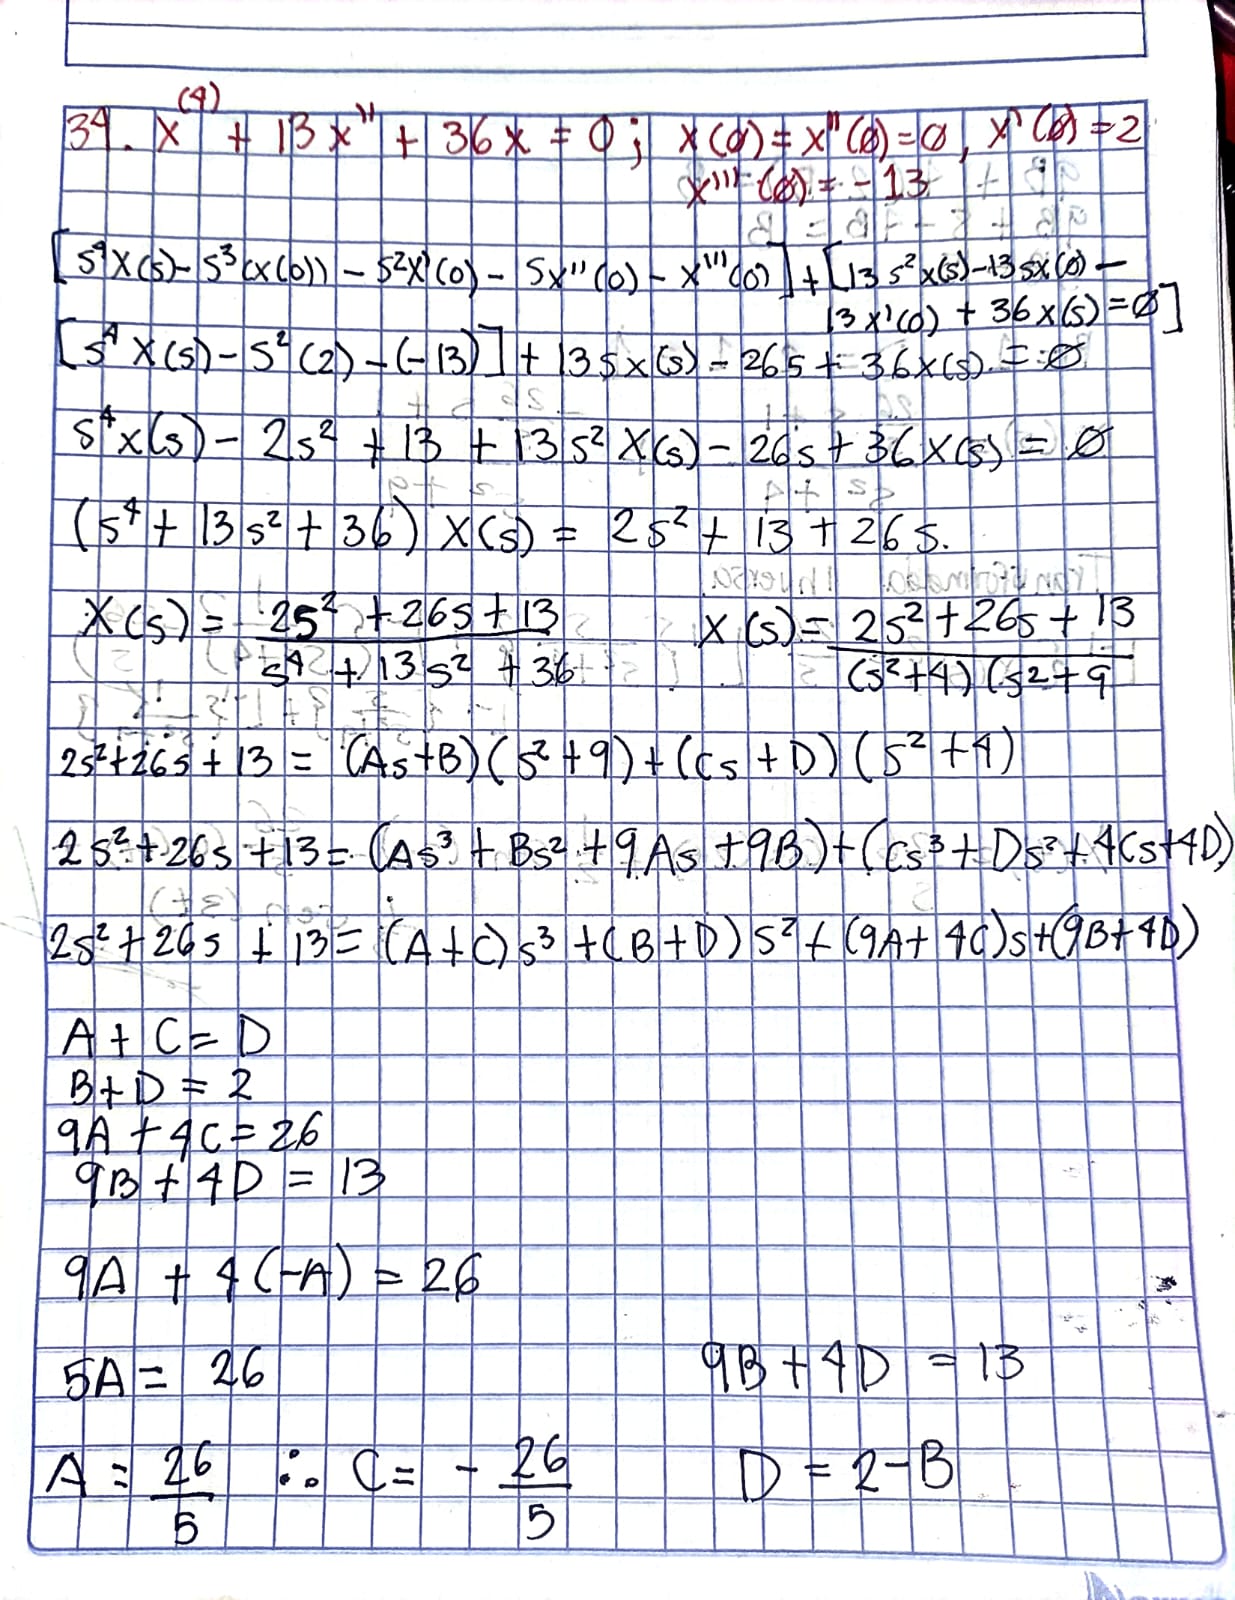 34. x⁽⁴⁾ + 13x'' + 36x = 0; x(0) = x''(0) = 0, x'(0) = 2
x'''(0) = -13
[s⁴X(s) - s³(x(0)) - s²x'(0) - sx''(0) - x'''(0)] + [13s²x(s) - 13sx(0) -
13x'(0) + 36x(s) = 0]
[s⁴X(s) - s²(2) - (-13)] + 13sx(s) - 26s + 36x(s) = 0
s⁴x(s) - 2s² + 13 + 13s²X(s) - 26s + 36X(s) = 0
(s⁴ + 13s² + 36) X(s) = 2s² + 13 + 26s.
X(s) = 2s² + 26s + 13 / s⁴ + 13s² + 36    X(s) = 2s² + 26s + 13 / (s²+4)(s²+9
2s² + 26s + 13 = (As+B)(s²+9) + (Cs+D)(s²+4)
2s² + 26s + 13 = (As³ + Bs² + 9As + 9B) + (Cs³ + Ds² + 4Cs + 4D)
2s² + 26s + 13 = (A+C)s³ + (B+D)s² + (9A+4C)s + (9B+4D)
A + C = D
B + D = 2
9A + 4C = 26
9B + 4D = 13
9A + 4(-A) = 26
5A = 26    9B + 4D = 13
A = 26/5 ∴ C = - 26/5    D = 2 - B